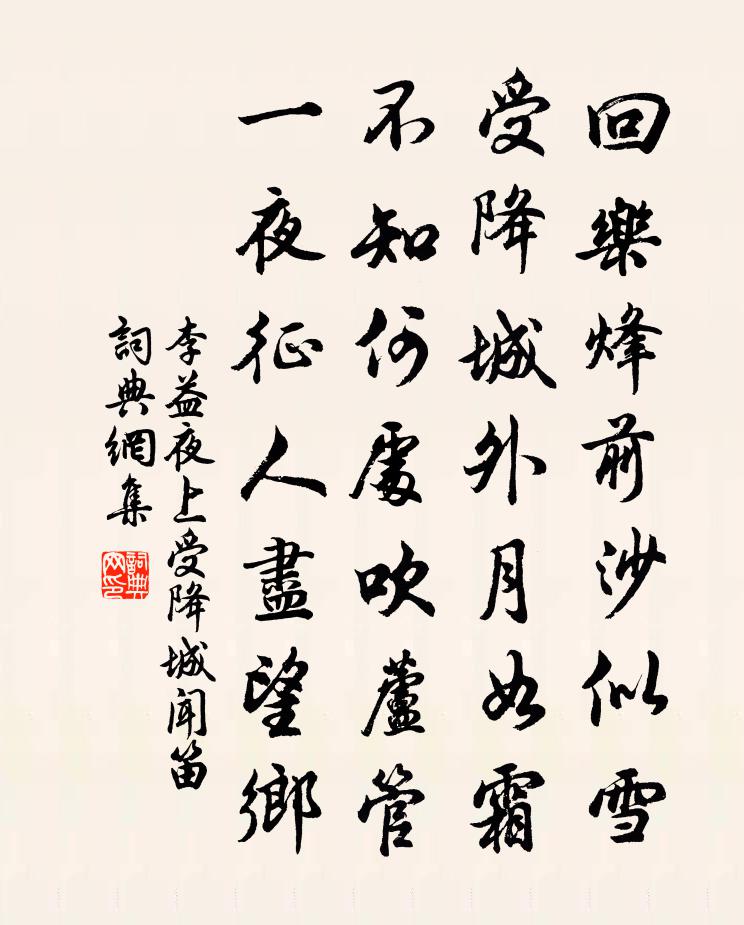 回樂烽前沙似雪
受降城外月如霜
不知何處吹蘆管
一夜征人盡望鄉
李益夜上受降城聞笛
詞典網集
詞典
网印